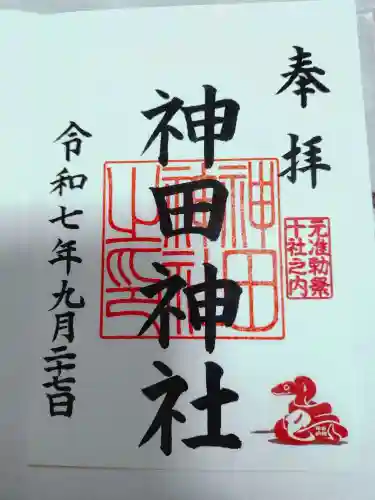 奉拝
元准勅祭
十社之内
神田神社
神田
神社
之印
令和七年九月二十七日